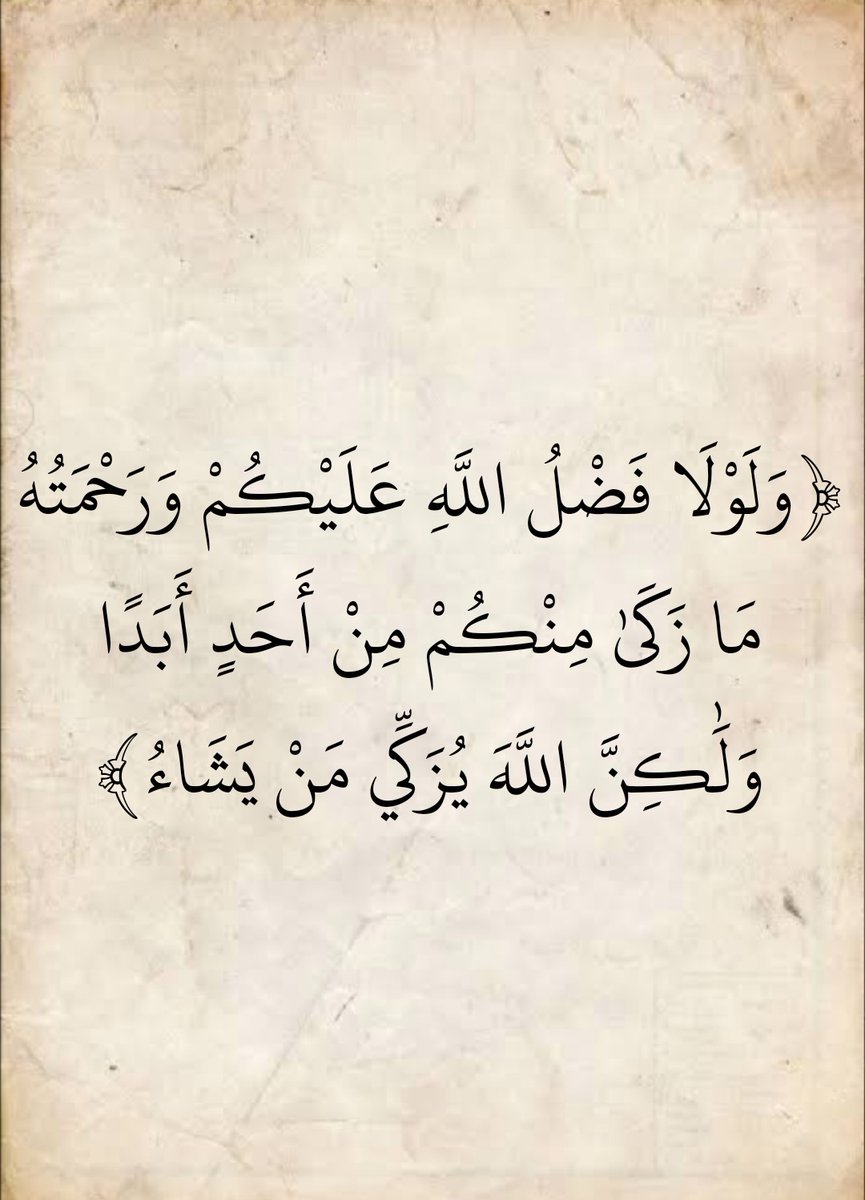 ﴿وَلَوْلَا فَضْلُ اللَّهِ عَلَيْكُمْ وَرَحْمَتُهُ
مَا زَكَىٰ مِنْكُمْ مِنْ أَحَدٍ أَبَدًا
وَلَٰكِنَّ اللَّهَ يُزَكِّي مَنْ يَشَاءُ﴾